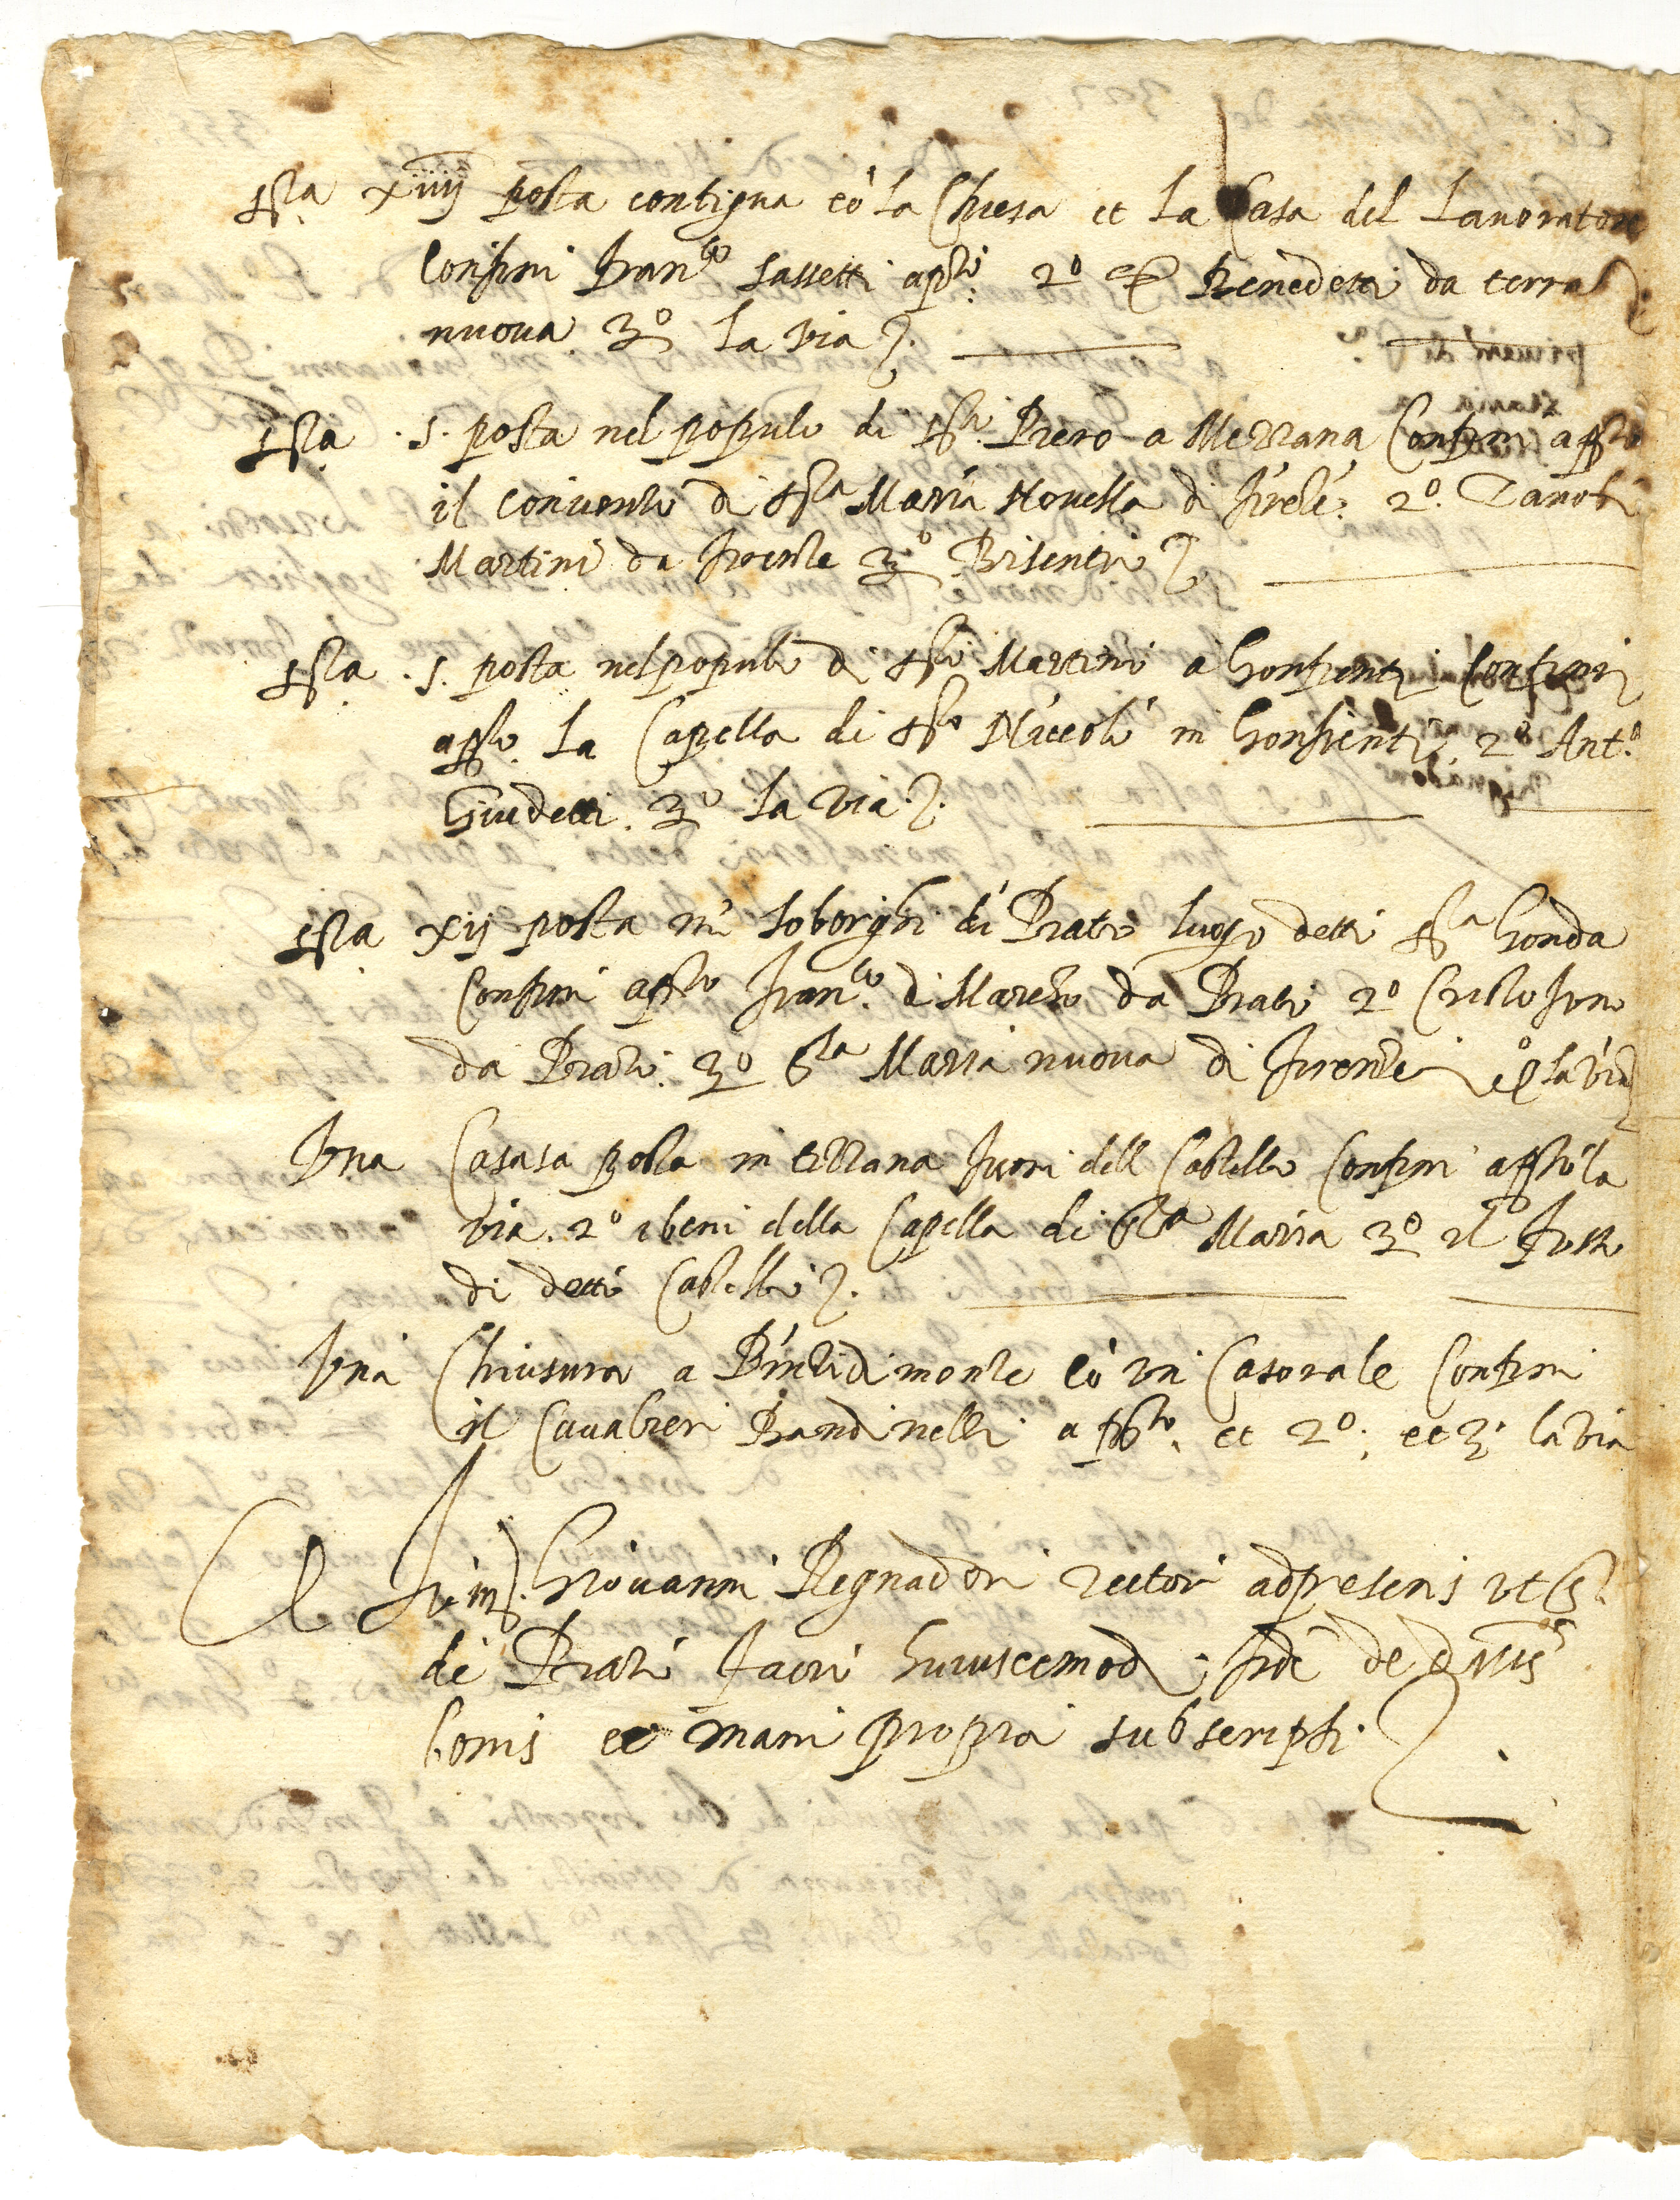 Sta xiiij posta contigua cō la Chiesa et la Casa del Lauoratore
Confini Franco Sassetti apo: 2o Benedetti da terra
nuova 3o la via
Sta . 5 . posta nel populo di Sto Piero a Mezzana Confini apo
il convento di Sta Maria Novella di Firēze 2o. Zanobi
Martini da Firenze 3o Bisentio
Sta . 5. posta nel populo di Sto Martino a Gonfienti Confini
apo. la Capella di Sto Niccolo in Gonfienti 2o Anto
Giudetti. 3o la via
Sta xij posta ne soborghi di Prato luogo detto Sta Gonda
Confini apo Franco. di Marcho da Prato 2o Cristofano
da Prato. 3o Sta Maria nuova di Firenze la via
Una Casasa posta in Mezzana fuori dell Castello Confini apo la
via. 2o i beni della Capella di Sta Maria 3o il fosso
di detto Castello
Una Chiusura a Pintidimonte cō un Casorale Confini
il Cavalieri Bandinelli a po. et 2o. et 3. la via
Giovanni Regnadori rettore ad presens
di Prato facio huiuscemodi fidē de
bonis et mani propria subscripsi.